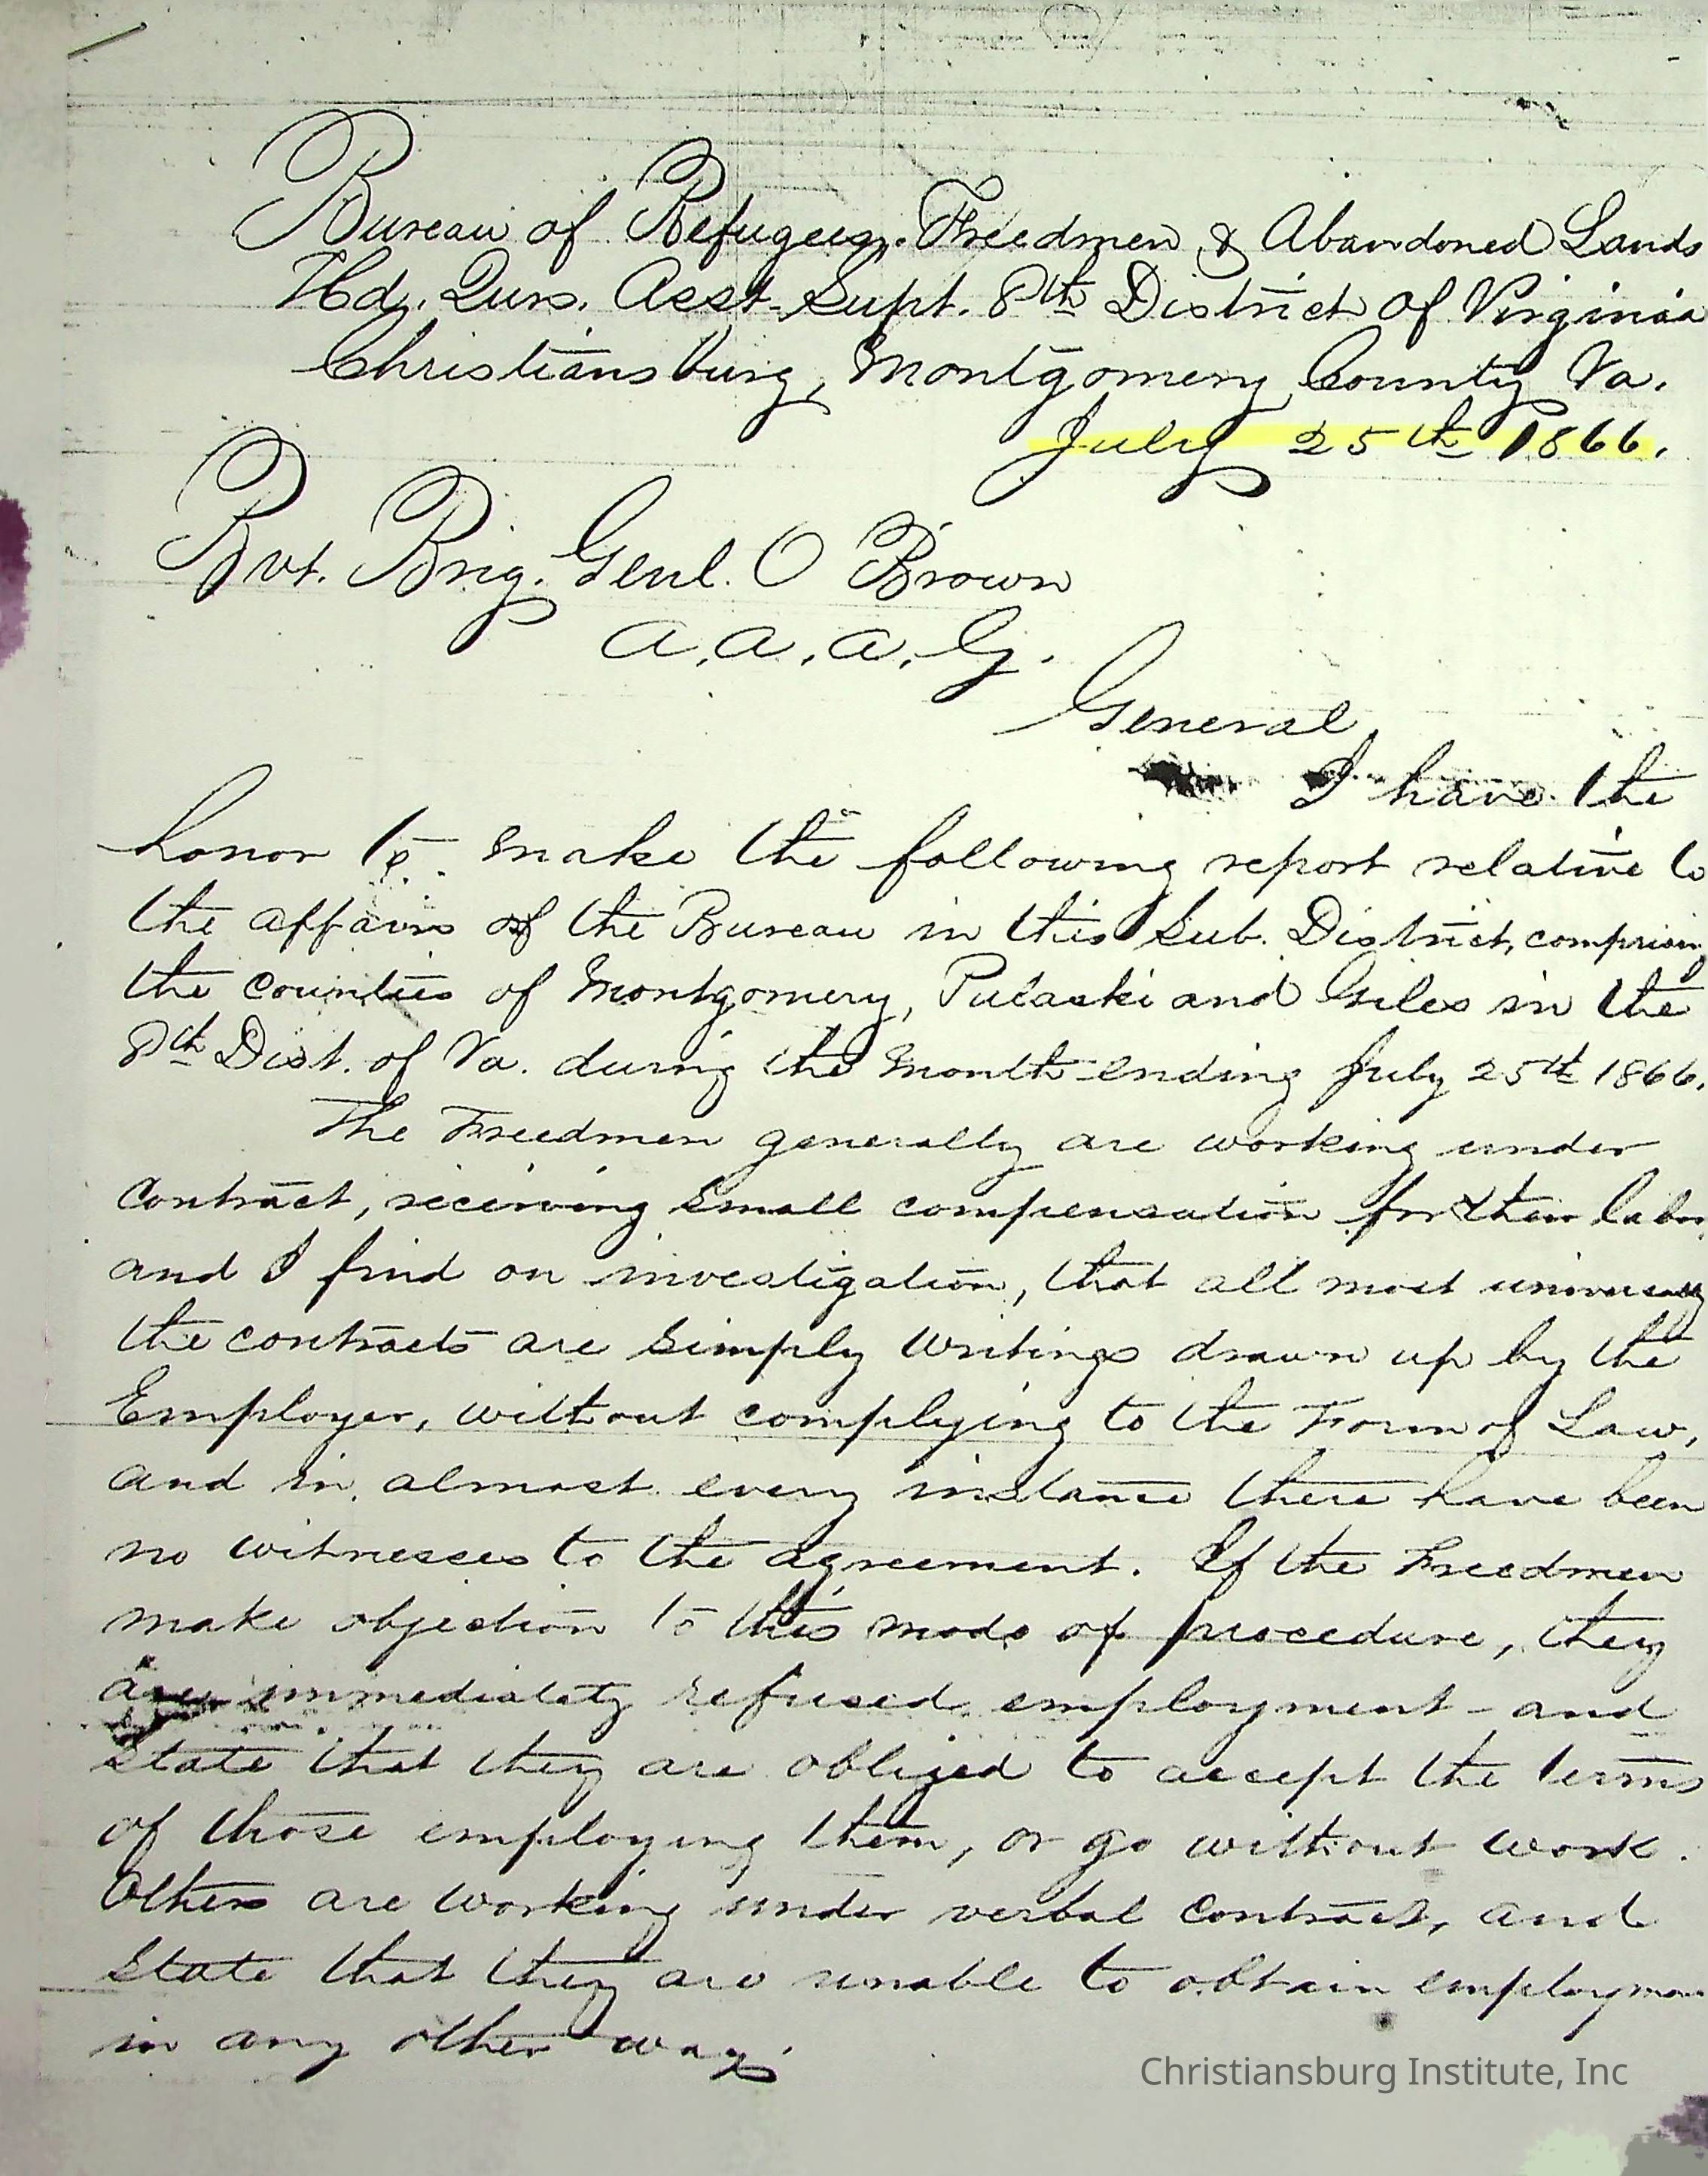 Bureau of Refugees. Freedmen & Abandoned Lands
Hd. Qurs. Asst. Supt. 8th District of Virginia
Christiansburg, Montgomery County Va.
July 25th 1866.
Bvt. Brig. Genl. O Brown
A. A. A. G.
General,
I have the
honor to make the following report relative to
the affairs of the Bureau in this Sub. District, comprising
the counties of Montgomery, Pulaski and Giles in the
8th Dist. of Va. during the month ending July 25th 1866.
The Freedmen generally are working under
Contract, receiving small compensation for their labor
and I find on investigation, that all most
the contracts are simply writings drawn up by the
Employer, without complying to the Form of Law,
and in almost every instance there have been
no witnesses to the agreement. If the Freedmen
make objection to this mode of procedure, they
are immediately refused employment - and
state that they are obliged to accept the terms
of those employing them, or go without work.
Others are working under verbal contract, and
state that they are unable to obtain employmen
in any other way.
Christiansburg Institute, Inc